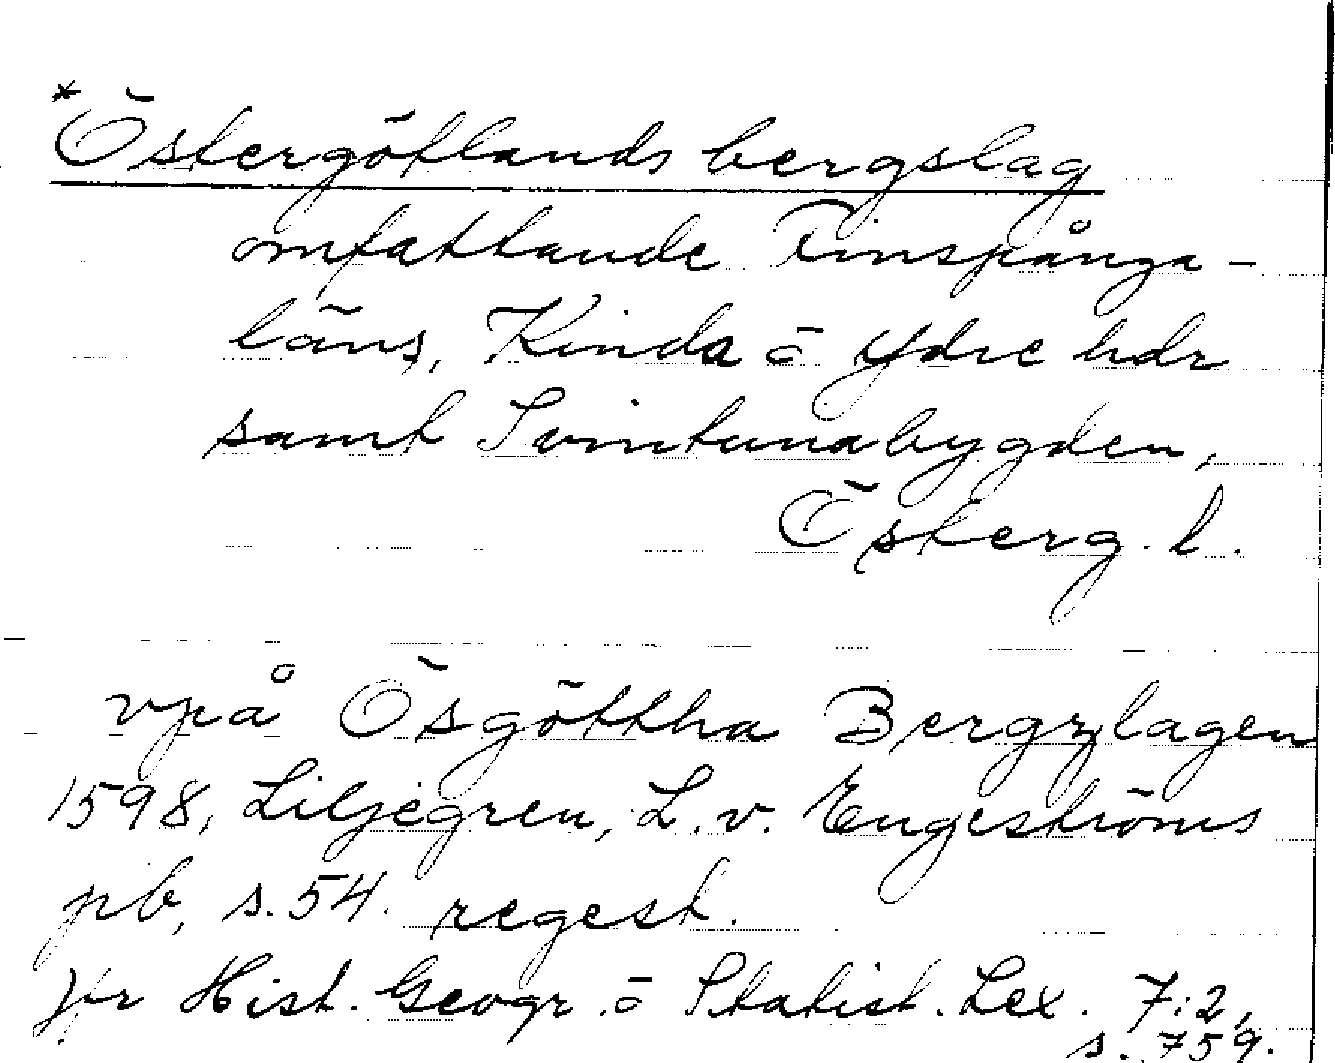 *Östergötlands bergslag
omfattande Finspånga-
läns, Kinda o Ydre hdr
samt Svintunabygden,
Österg. l.
vpå Ösgöttha Bergzlagen
1598, Liljegren, L. v. Engeströms
pb, s. 54. regest.
Jfr Hist. Geogr. o Statist. Lex. 7:2,
s. 759.